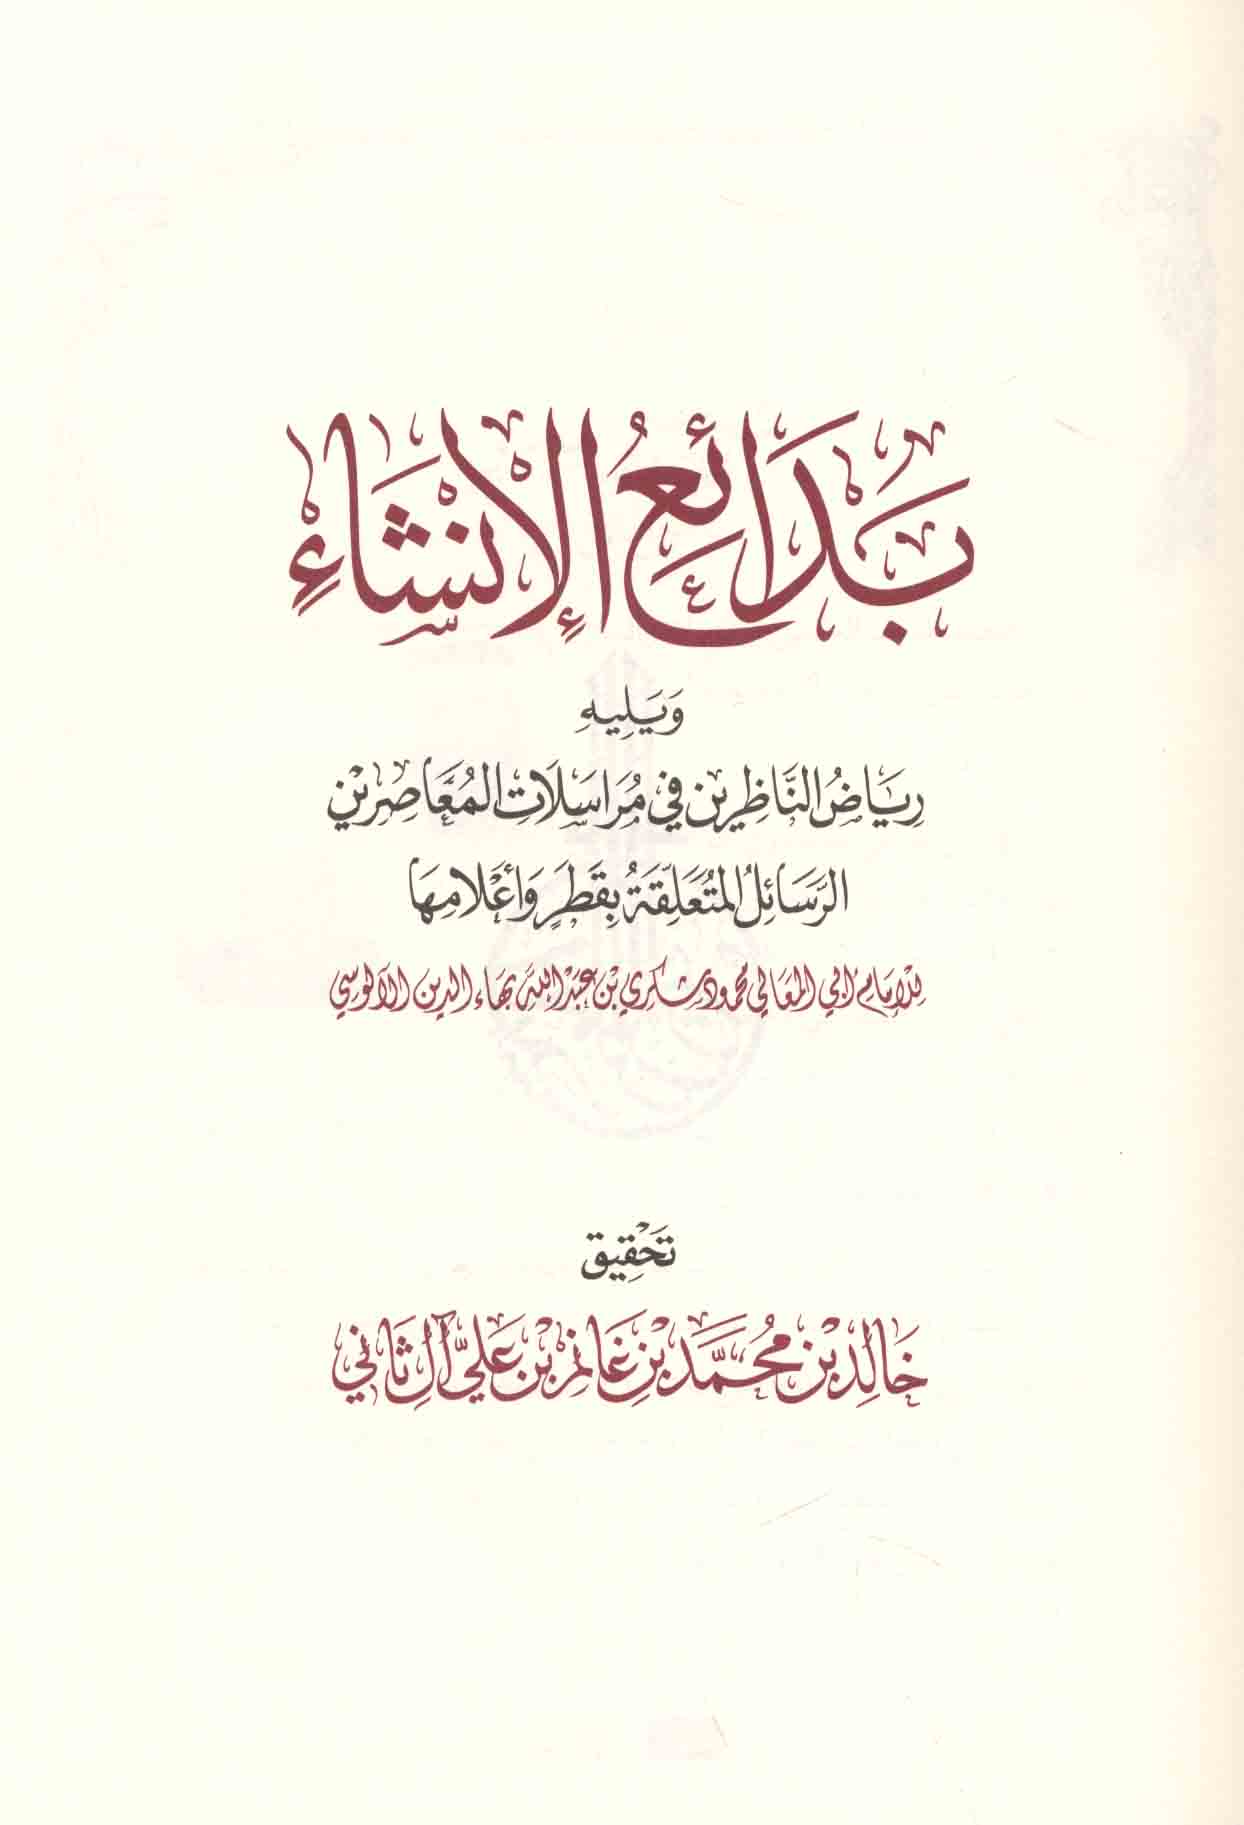 بَدَائِعُ الإِنْشَاءِ
وَيَلِيهِ
رِيَاضُ النَّاظِرِين فِي مُرَاسَلَاتِ المُعَاصِرِيْن
الرَّسَائِلُ المُتَعَلِّقَةُ بِقَطَرٍ وَأَعْلَامِهَا
للإمام أبي المعالي محمود شكري بن عبد الله بهاء الدين الآلوسي
تَحْقِيق
خَالِد بْن مُحَمَّد بْن غَانِم بْن عَلِيّ آل ثَانِي